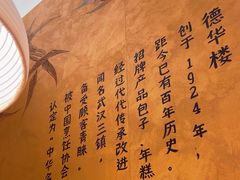 德华楼
创于1924年，
距今已有百年历史。
招牌产品包子、年糕
经过代代传承改进
闻名武汉三镇，
备受顾客青睐，
被中国烹饪协会
认定为“中华名